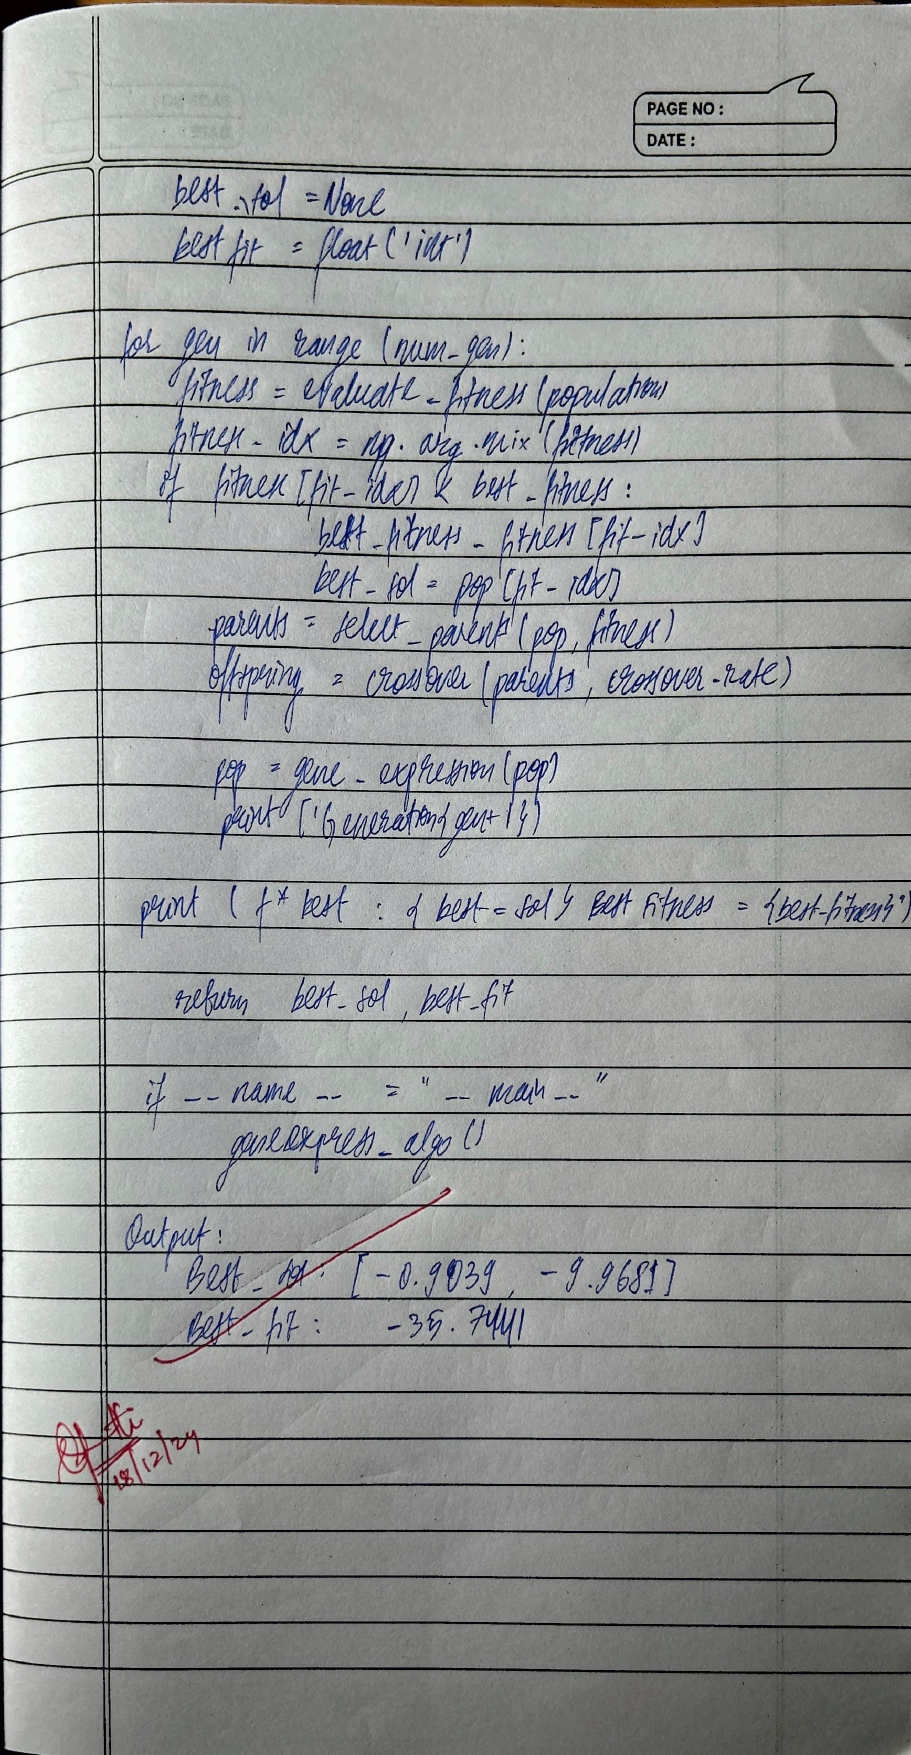 PAGE NO :
DATE :
best_sol = None
best fit = float ('inf')
for gen in range (num-gen):
fitness = evaluate - fitness (population)
fitness - idx = np. arg.min (fitness)
if fitness [fit-idx] < best - fitness :
best - fitness - fitness [fit-idx]
best - sol = pop [fit - idx]
parents = select - parent (pop, fitness)
offspring = crossover (parents, crossover-rate)
pop = gene - expression (pop)
print ('Generation{gen+1})
print ( f" best : { best = sol } Best Fitness = {best-fitness}")
return best - sol , best - fit
if -- name -- = " -- main -- "
geneexpress - algo ()
Output :
Best - sol : [ -0.9039 , -9.9681]
Best - fit : -35.7441
18/12/24